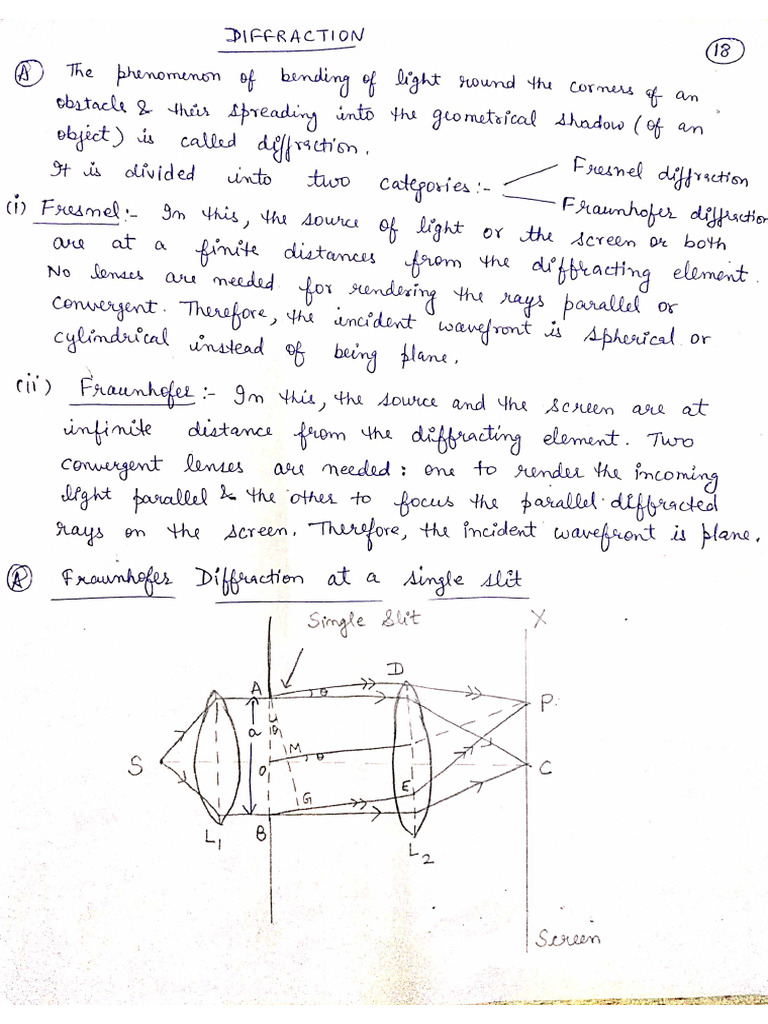 DIFFRACTION
18
A The phenomenon of bending of light round the corners of an
obstacle & their spreading into the geometrical shadow (of an
object) is called diffraction.
It is divided into two categories :-
Fresnel diffraction
Fraunhofer diffraction
(i) Fresnel :- In this, the source of light or the screen or both
are at a finite distances from the diffracting element.
No lenses are needed for rendering the rays parallel or
convergent. Therefore, the incident wavefront is spherical or
cylindrical instead of being plane.
(ii) Fraunhofer :- In this, the source and the screen are at
infinite distance from the diffracting element. Two
convergent lenses are needed : one to render the incoming
light parallel & the other to focus the parallel diffracted
rays on the screen. Therefore, the incident wavefront is plane.
Fraunhofer Diffraction at a single slit
Single Slit
X
D
A
θ
P
a
θ
M
S
O
θ
C
G
E
B
L1
L2
Screen